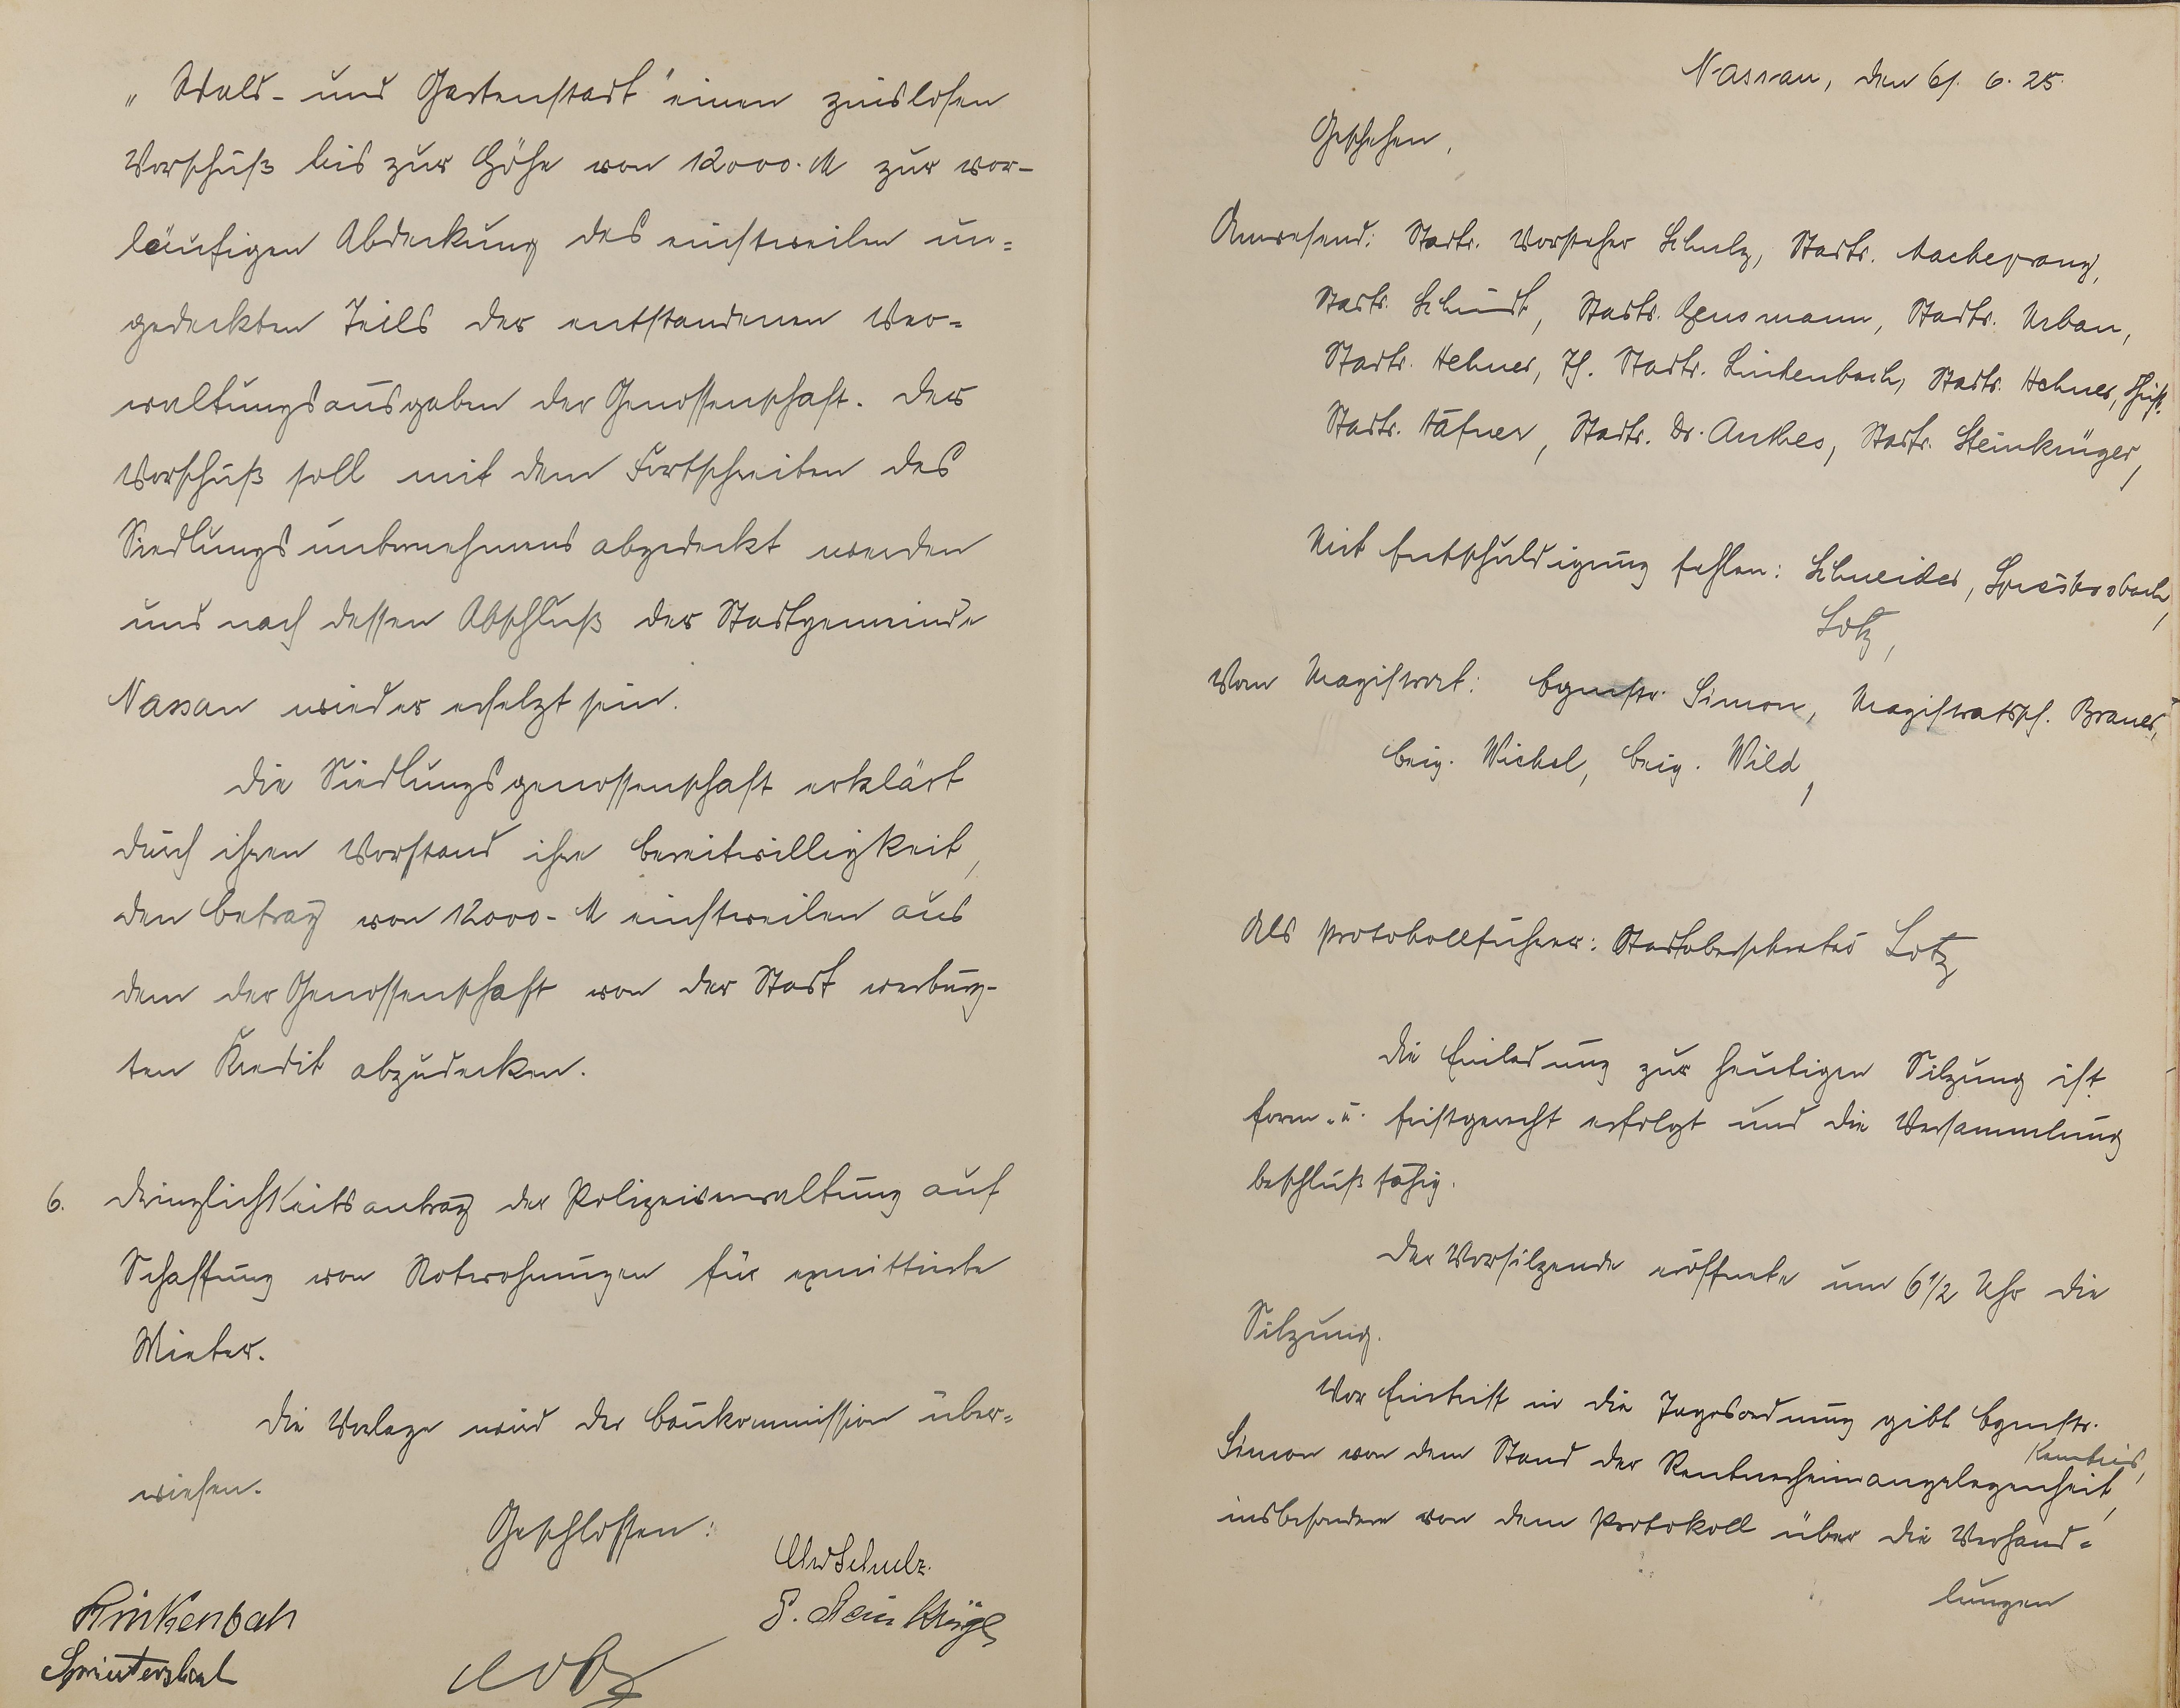 „Wald- und Gartenstadt" einen zinslosen
Vorschuß bis zur Höhe von 12000.M zur vor-
läufigen Abdeckung des einstweilen un=
gedeckten Teils der entstandenen Ver=
waltungsausgaben der Genossenschaft. Der
Vorschuß soll mit dem Fortschreiten des
Siedlungsunternehmens abgedeckt werden
und nach dessen Abschluß der Stadtgemeinde
Nassau wieder ersetzt sein.
Die Siedlungsgenossenschaft erklärt
durch ihren Vorstand ihre Bereitwilligkeit,
den Betrag von 12000- M einstweilen aus
dem der Genossenschaft von der Stadt verbürg-
ten Kredit abzudecken.
6. Dringlichkeitsantrag der Polizeiverwaltung auf
Schaffung von Notwohnungen für exmittierte
Mieter.
Die Vorlage wird der Baukommission über=
wiesen.
Geschlossen:
Schulz.
Linkenbach
Lotz
Nassau, den 6. 25.
Geschehen,
Anwesend: Stadtv. Vorsteher Schulz, Stadtv.
Stadtv. Schmidt, Stadtv. Stadtv. Urban,
Stadtv. Hehner, Th. Stadtv. Linkenbach, Stadtv. Hehner, Christ.
Stadtv. Häfner, Stadtv. Dr. Anthes, Stadtv. Steinkrüger,
Mit Entschuldigung fehlen: Schneider,
Lotz,
Vom Magistrat: Bgmstr. Simon, Magistratssch. Brauer,
Beig. Wickel, Beig. Wild,
Als Protokollführer: Stadtobersekretär Lotz,
Die Einladung zur heutigen Sitzung ist
form- u. fristgerecht erfolgt und die Versammlung
beschlußfähig.
Der Vorsitzende eröffnete um 6 1/2 Uhr die
Sitzung.
Vor Eintritt in die Tagesordnung gibt Bgmstr.
Simon von dem Stand der Rentnerheimangelegenheit, Kenntnis,
insbesondere von dem Protokoll über die Verhand=
lungen